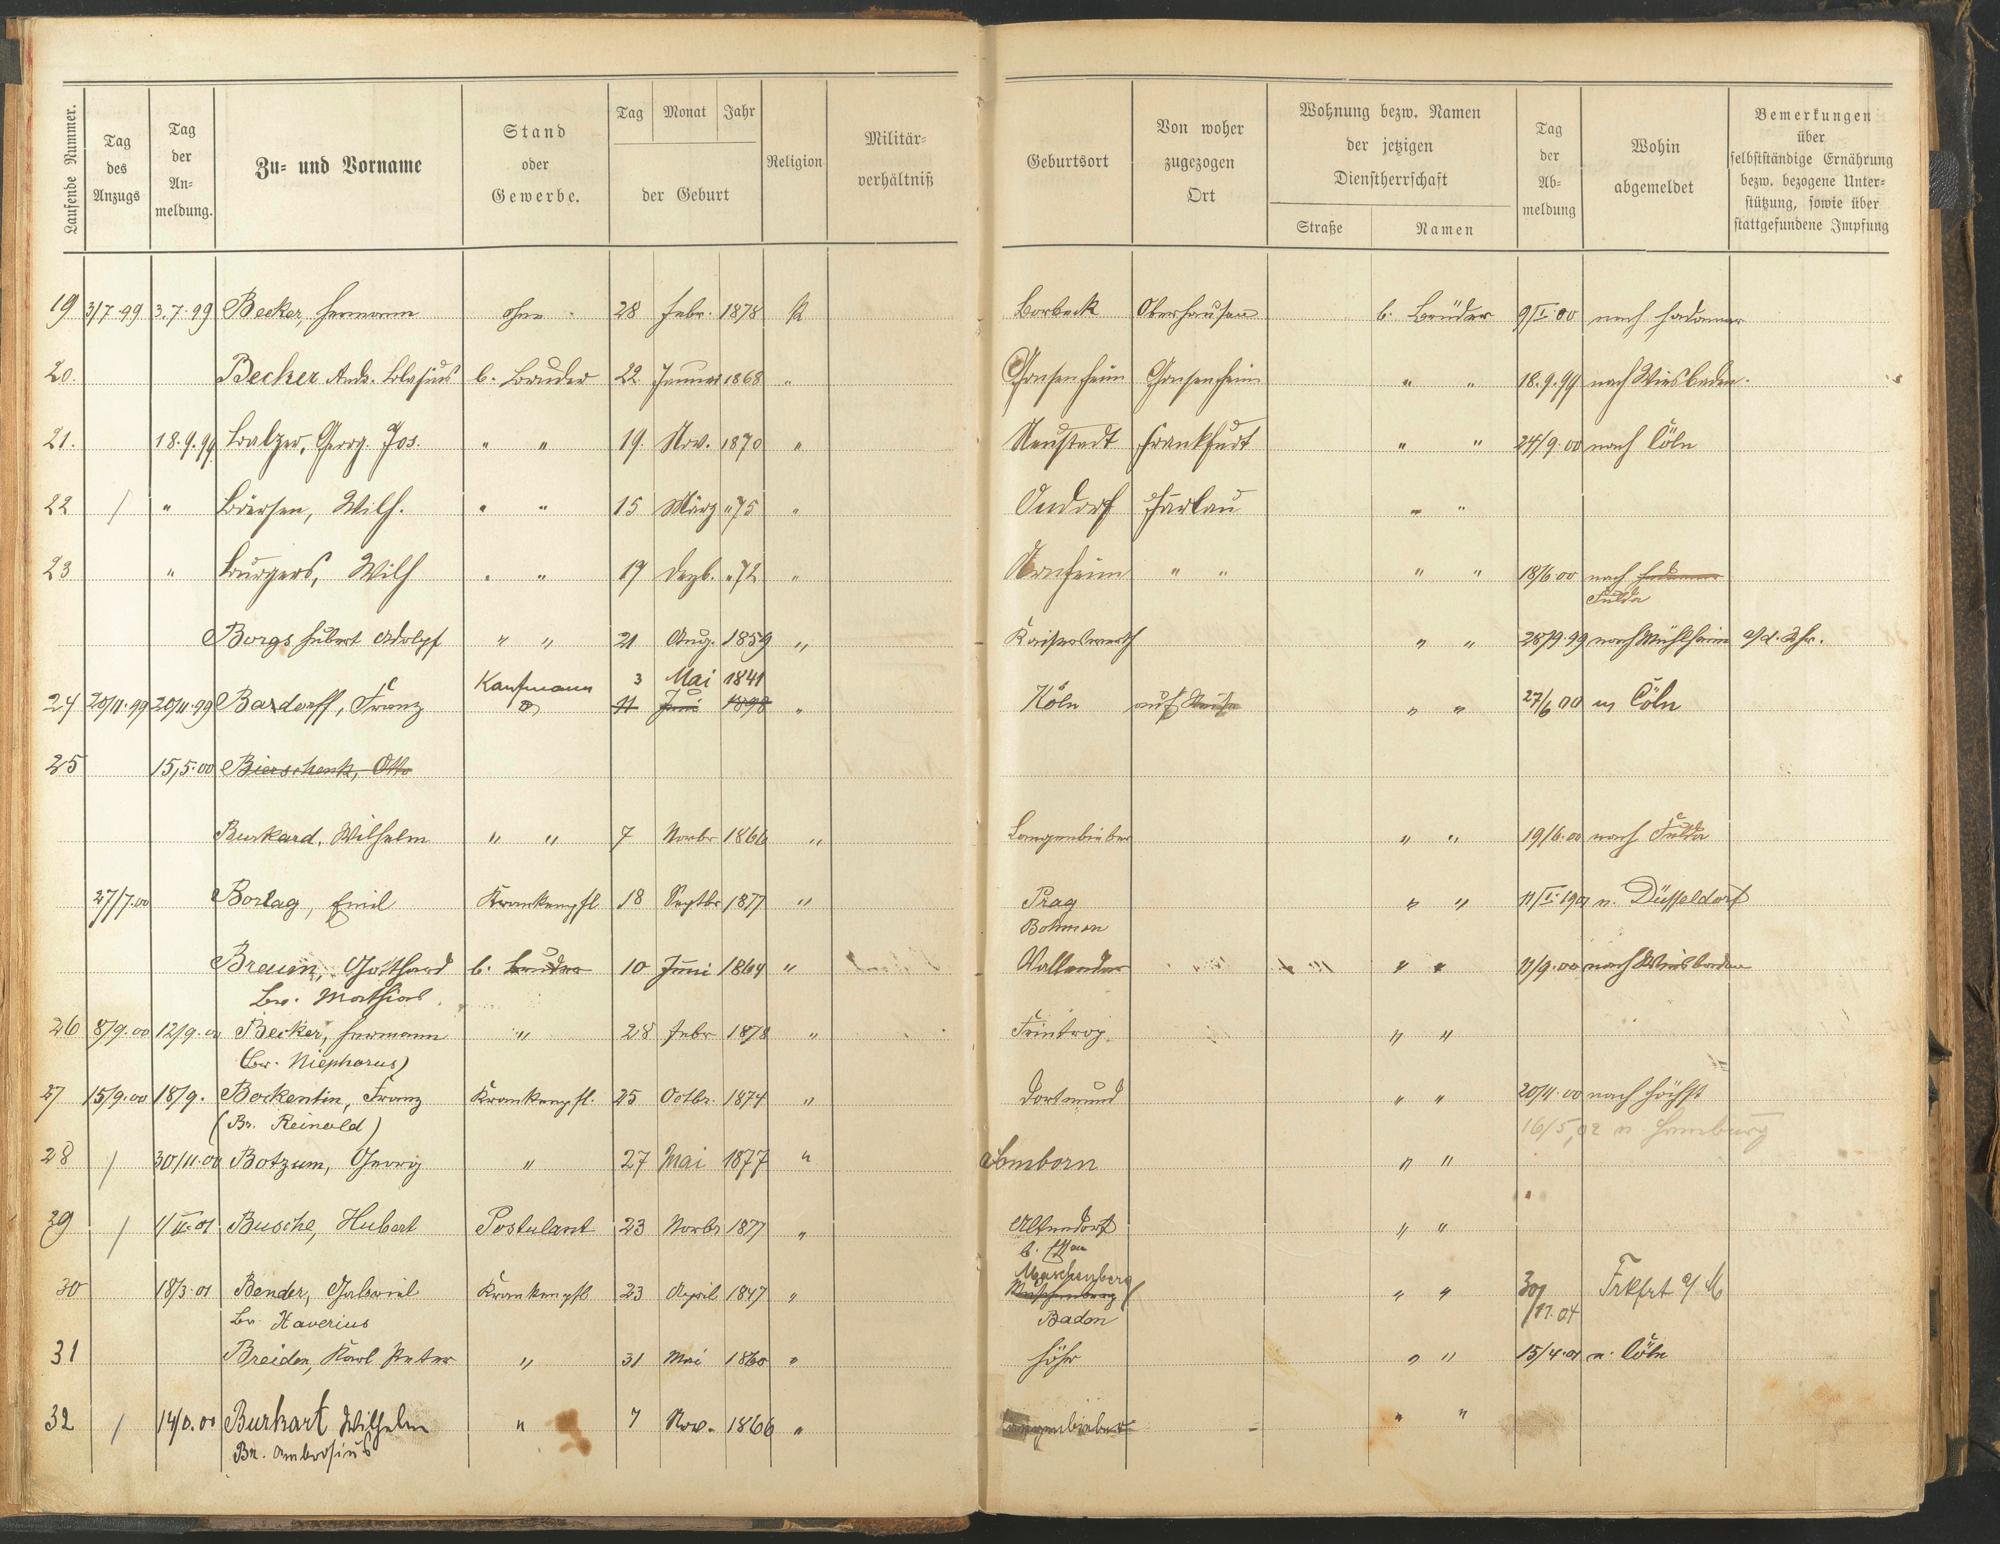 Laufende Nummer.
Tag des Anzugs
Tag der An- meldung.
Zu- und Vorname
Stand oder Gewerbe.
Tag Monat Jahr
der Geburt
Religion
Militär- verhältniß
Geburtsort
Von woher zugezogen Ort
Wohnung bezw. Namen der jetzigen Dienstherrschaft
Straße Namen
Tag der Ab- meldung
Wohin abgemeldet
Bemerkungen über selbstständige Ernährung bezw. bezogene Unter- stützung, sowie über stattgefundene Impfung
19 3/7 99 3.7.99 Becker, Hermann ohne 28 Febr. 1878 K Borbeck Oberhausen b. Brüder 9/I.00 nach Hadamar
20. Becker Andr. Blasius b. Bruder 22 Januar 1868 " Gonsenheim Gonsenheim " " 18.9.99 nach Wiesbaden.
21. 18.9.99 Balzer, Georg Jos. " " 19. Nov. 1870 " Neustadt Frankfurt " " 24/9.00 nach Cöln
22 / " Börsen, Wilh. " " 15 März "75 " " "
23 " Burgers, Wilh " " 19 Dezb. "72 " Arnheim " " " " 18/6.00 nach Hadamar
Fulda
Borgs Hubert Adolph " " 21 Aug. 1859 " Kaiserswerth " " 28/9.99 nach Mühlheim a/d. Rhr.
Kaufmann 3 Mai 1841
24 20/11.99 20/11.99 Bardorff, Franz 11 Juni 1898 " Köln auf Reise " " 27/6 00 n Cöln
25 15,5.00 Bierschenk, Otto
Burkard, Wilhelm " " 7 Novbr 1866 " Langenbieber " " 19/6.00 nach Fulda
27/7.00 Borlag, Emil Krankenpfl. 18 Septbr 1877 " Prag " " 11/I.1901 n. Düsseldorf
Bohmen
Breum, Gotthard b. Bruder 10 Juni 1864 " Vallendar " " 11/9.00 nach Wiesbaden
Br. Mathias.
26 8/9.00 12/9.00 Becker, Hermann " 28 Febr 1878 " Frintrop. " "
(Br. Niephorus)
27 15/9.00 18/9. Bockentin, Franz Krankenpfl. 25 Octbr. 1874 " Dortmund " " 20/11.00 nach Höchst
(Br. Reinold) 16/5,02 n. Hamburg
28 / 30/11.00 Botzum, Georg " 27 Mai 1877 " " "
29 / 1/II.01 Busche, Hubert Postulant 23 Novbr 1877 " Altendorf " "
b. Essen
30 18/3.01 Bender, Gabriel Krankenpfl 23 April 1847 " " " 30/11.04 Frkfrt a/M
Br. Xaverius Baden
31 Breiden, Karl Peter " 31 Mai 1860 " Höhr " " 15/4.01 n. Cöln
32 / Burkart Wilhelm " 7 Nov. 1866 " Langenbieber " "
Br. Ambrosius